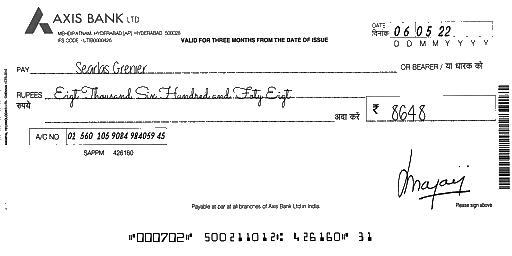 AXIS BANK LTD
MEHDIPATNAM, HYDERABAD (AP) HYDERABAD 500028
IFS CODE - UTIB0000426
VALID FOR THREE MONTHS FROM THE DATE OF ISSUE
DATE
दिनांक
0 6 0 5 22
D D M M Y Y Y Y
PAY Searlas Grenier OR BEARER / या धारक को
RUPEES Eigt Thousand Six Hundred and Foty Eigt
रुपये
अदा करें ₹ 8648
A/C NO 01 560 105 9084 984059 45
SAPPM 426160
Payable at par at all branches of Axis Bank Ltd in India.
Please sign above
"000702" 500211012: 426160" 31